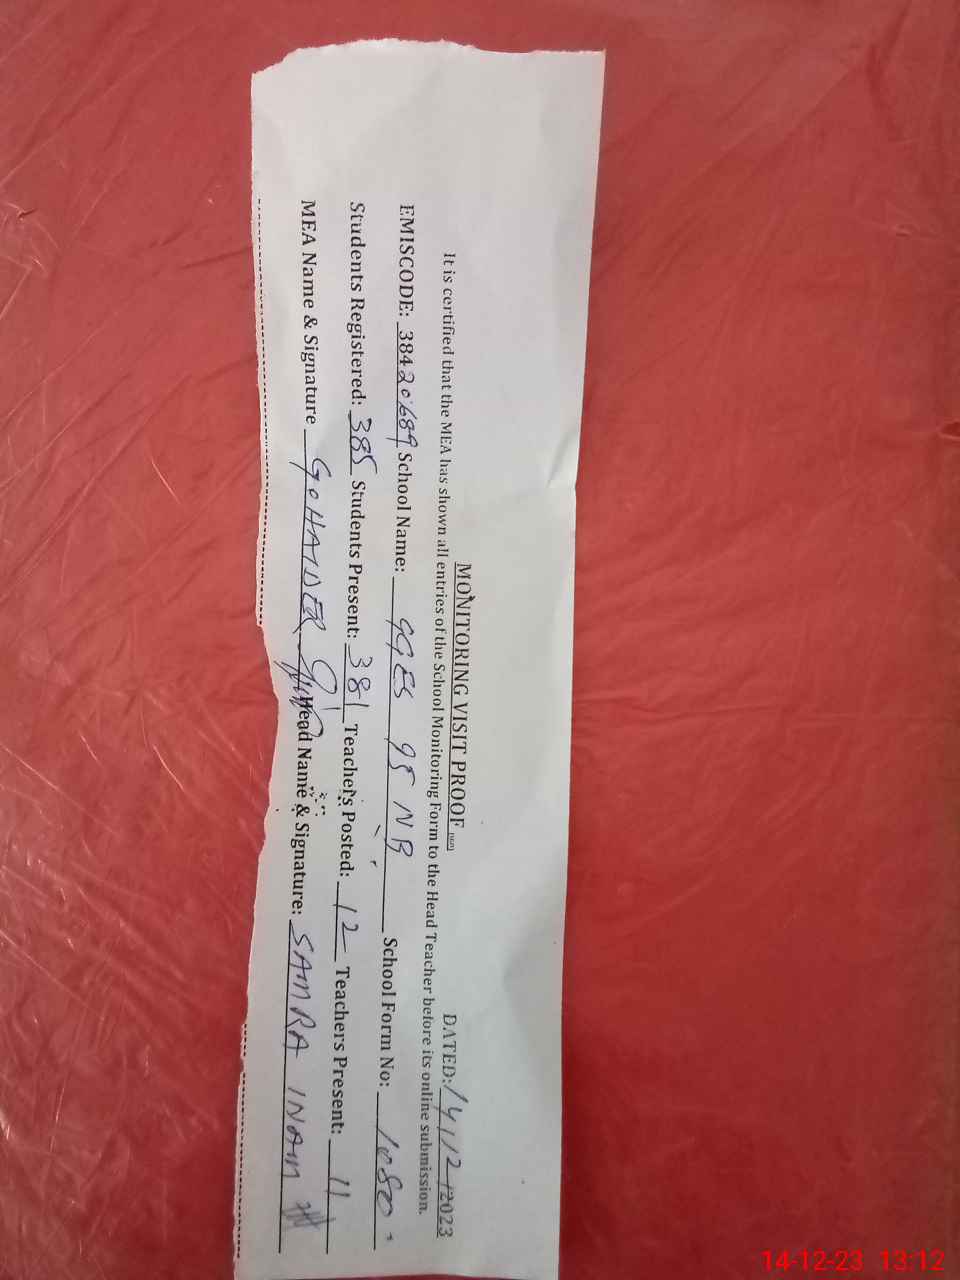 MONITORING VISIT PROOF DATED: 14/12/2023
It is certified that the MEA has shown all entries of the School Monitoring Form to the Head Teacher before its online submission.
EMISCODE: 38420689 School Name: GGES 95 NB School Form No: 1080
Students Registered: 385 Students Present: 381 Teachers Posted: 12 Teachers Present: 11
MEA Name & Signature GOHAIDER Head Name & Signature: SAMRA INAM
14-12-23 13:12